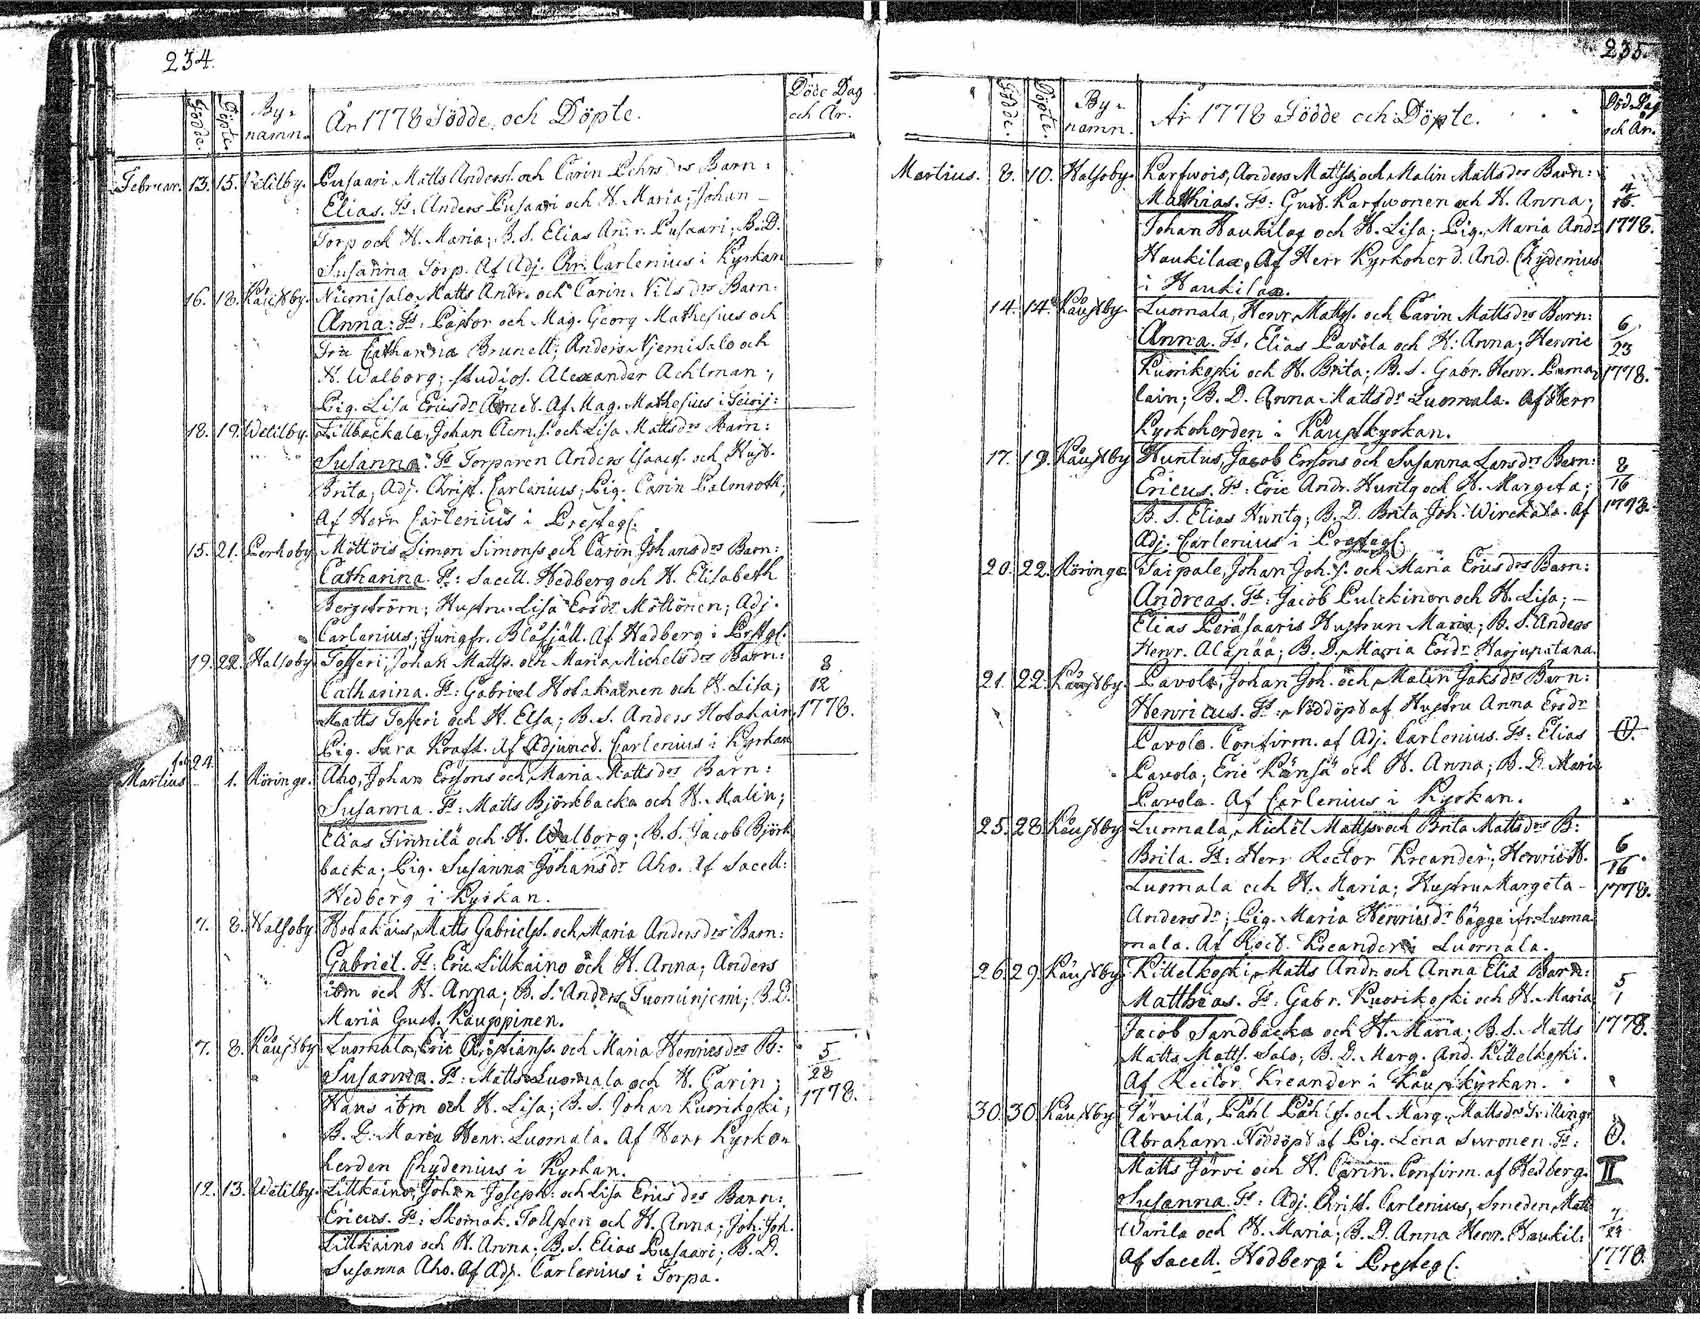 234.
Födde. Döpte. By-namn. År 1778 Födde och Döpte. Döde Dag och År.
Februar. 13. 15. Vetilby. Pusaari Matts Anderss. och Carin Pehrsdrs Barn:
Elias. Fs: Anders Pusaari och H. Maria; Johan
Torp och H. Maria; B.S. Elias And.r. Pusaari; B.D.
Susanna Torp. Af Adj. Chr. Carlenius i Kyrkan
16. 18. Kaustby. Niemisalo, Matts Andr. och Carin Nilsdrs Barn:
Anna. Fs: Pastor och Mag. Georg Mathesius och
Fru Catharina Brunell; Anders Njemisalo och
H. Walborg; studios. Alexander Achlman;
Pig. Lisa Ericsdr. Af Mag. Mathesius i
18. 19. Wetilby. Lillbackala, Johan och Lisa Mattsdrs Barn:
Susanna. Fs Torparen Anders Isaacs. och Hust.
Brita; Adj. Christ. Carlenius; Pig. Carin Palmroth;
Af Herr Carlenius i Prestegl.
15. 21. Perhoby. Möttöis Simon Simonss och Carin Johansdrs Barn:
Catharina. Fs: Sacell. Hedberg och H. Elisabeth
Bergström; Hustru Lisa Ersdr Möttönen; Adj.
Carlenius; Jungfr. Blåfjäll. Af Hedberg i Prstgl.
19. 22. Halsoby. Tofferi, Johan Mattss. och Maria Michelsdrs Barn: 8
Catharina. Fs: Gabriel Hotakainen och H. Lisa; 12
Matts Tofferi och H. Elsa; B.S. Anders Hotakain, 1778.
Pig. Sara Kraft. Af Adjunct. Carlenius i Kyrkan
feb. 24.
Martius 1. Röringe. Aho, Johan Erssons och Maria Mattsdrs Barn:
Susanna. Fs: Matts Björkbacka och H. Malin;
Elias Finnilä och H. Walborg; B.S. Jacob Björk
backa; Pig. Susanna Johansdr Aho. Af Sacell:
Hedberg i Kyrkan.
7. 8. Halsoby. Hotakais, Matts Gabrielss. och Maria Andersdrs Barn:
Gabriel. Fs: Eric Lillkaino och H. Anna; Anders
ibm och H. Anna; B.S. Anders Tuominjemi; B.D.
Maria Gust. Kauppinen.
7. 8. Kaustby. Luomala, Eric Christianss. och Maria Henricsdrs B: 5
Susanna. Fs: Matts Luomala och H. Carin; 28
Hans ibm och H. Lisa; B.S. Johan Kuorikoski; 1778.
B.D. Maria Henr. Luomala. Af Herr Kyrko-
herden Chydenius i Kyrkan.
12. 13. Wetilby. Lillkaino, Johan Joseph: och Lisa Ericsdrs Barn:
Ericus. Fs: Skomak. Tollsten och H. Anna; Joh: Joh.
Lillkaino och H. Anna; B.S. Elias Pusaari; B.D.
Susanna Aho. Af Adj. Carlenius i Torpa.
235.
Födde. Döpte. By-namn. År 1778 Födde och Döpte. Död. Dag och År.
Martius. 8. 10. Halsoby. Karfwois, Anders Matts. och Malin Mattsdrs Barn:
Mathias. Fs: Gust. Karfwonen och H. Anna; 4/16
Johan Haukilax och H. Lisa; Pig. Maria Andr. 1778.
Haukilax, Af Herr Kyrkoherd. And. Chydenius
i Haukilax.
14. 14. Kaustby. Luomala, Henr. Mattss. och Carin Mattsdrs Barn:
Anna. Fs: Elias Pavola och H. Anna; Henric 6/23
Kuorikoski och H. Brita; B.S. Gabr. Henr. Puma 1778.
lain; B.D. Anna Mattsdr Luomala. Af Herr
Kyrkoherden i Kaustkyrkan.
17. 19. Kaustby Huntus, Jacob Erssons och Susanna Larsdrs Barn: 8
Ericus. Fs: Eric Andr. Huntus och H. Margeta; 16
B.S. Elias Huntus; B.D. Brita Joh. Wirckala. Af 1778.
Adj. Carlenius i Prestegl.
20. 22. Röringe. Taipale, Johan Joh.s. och Maria Ericsdrs Barn:
Andreas. Fs: Jacob Pulckinen och H. Lisa;
Elias Peräsaaris Hustrun Maria; B.S. Andeas
Henr. Alapää; B.D. Maria Ersdr Harjupatana.
21. 22. Kaustby. Pavola, Johan Joh. och Malin Jaksdrs Barn:
Henricus. Fs: Nöddöpt af Hustru Anna Ersdr
Pavola. Confirm. af Adj. Carlenius. Fs: Elias
Pavola; Eric Känsä och H. Anna; B.D. Maria
Pavola. Af Carlenius i Kyrkan.
25. 28. Kaustby Luomala, Michel Mattss. och Brita Mattsdrs B:
Brita. Fs: Herr Rector Kreander; Henric H. 6/16
Luomala och H. Maria; Hustru Margeta 1778.
Andersdr; Pig. Maria Henricsdr bägge ifr. Luoma
mala. Af Rect. Kreander i Luomala.
26. 29. Kaustby Kittelkoski, Matts Andr. och Anna Elia Barn: 5
Matthias. Fs: Gabr. Kuorikoski och H. Maria 1
Jacob Sandbacka och H. Maria; B.S. Matts 1778.
Matts Matts. Salo; B.D. Marg. And. Kittelkoski.
Af Rector Kreander i Kaustkyrkan.
30. 30. Kaustby Järvilä, Påhl Påhls. och Marg. Mattsdrs Tvilling:
Abraham. Nöddöpt af Pig. Lena Suronen. Fs:
Matts Järvi och H. Carin. Confirm. af Hedberg. II
Susanna. Fs: Adj. Christ. Carlenius, Smeden Matts
Warila och H. Maria; B.D. Anna Henr. Haukil: 7/24
Af Sacell. Hedberg i Prestegl. 1778.